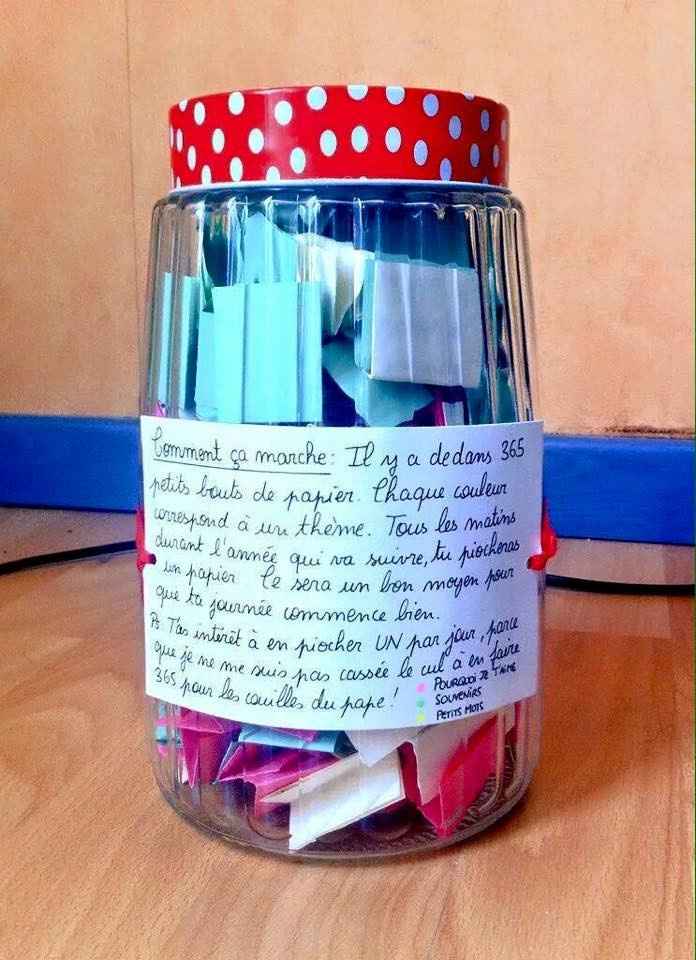 Comment ça marche : Il y a dedans 365
petits bouts de papier. Chaque couleur
correspond à un thème. Tous les matins
durant l'année qui va suivre, tu piocheras
un papier. Ce sera un bon moyen pour
que ta journée commence bien.
Ps T'as intérêt à en piocher UN par jour, parce
que je ne me suis pas cassée le cul à en faire
365 pour les couilles du pape !
POURQUOI JE T'AIME
SOUVENIRS
PETITS MOTS